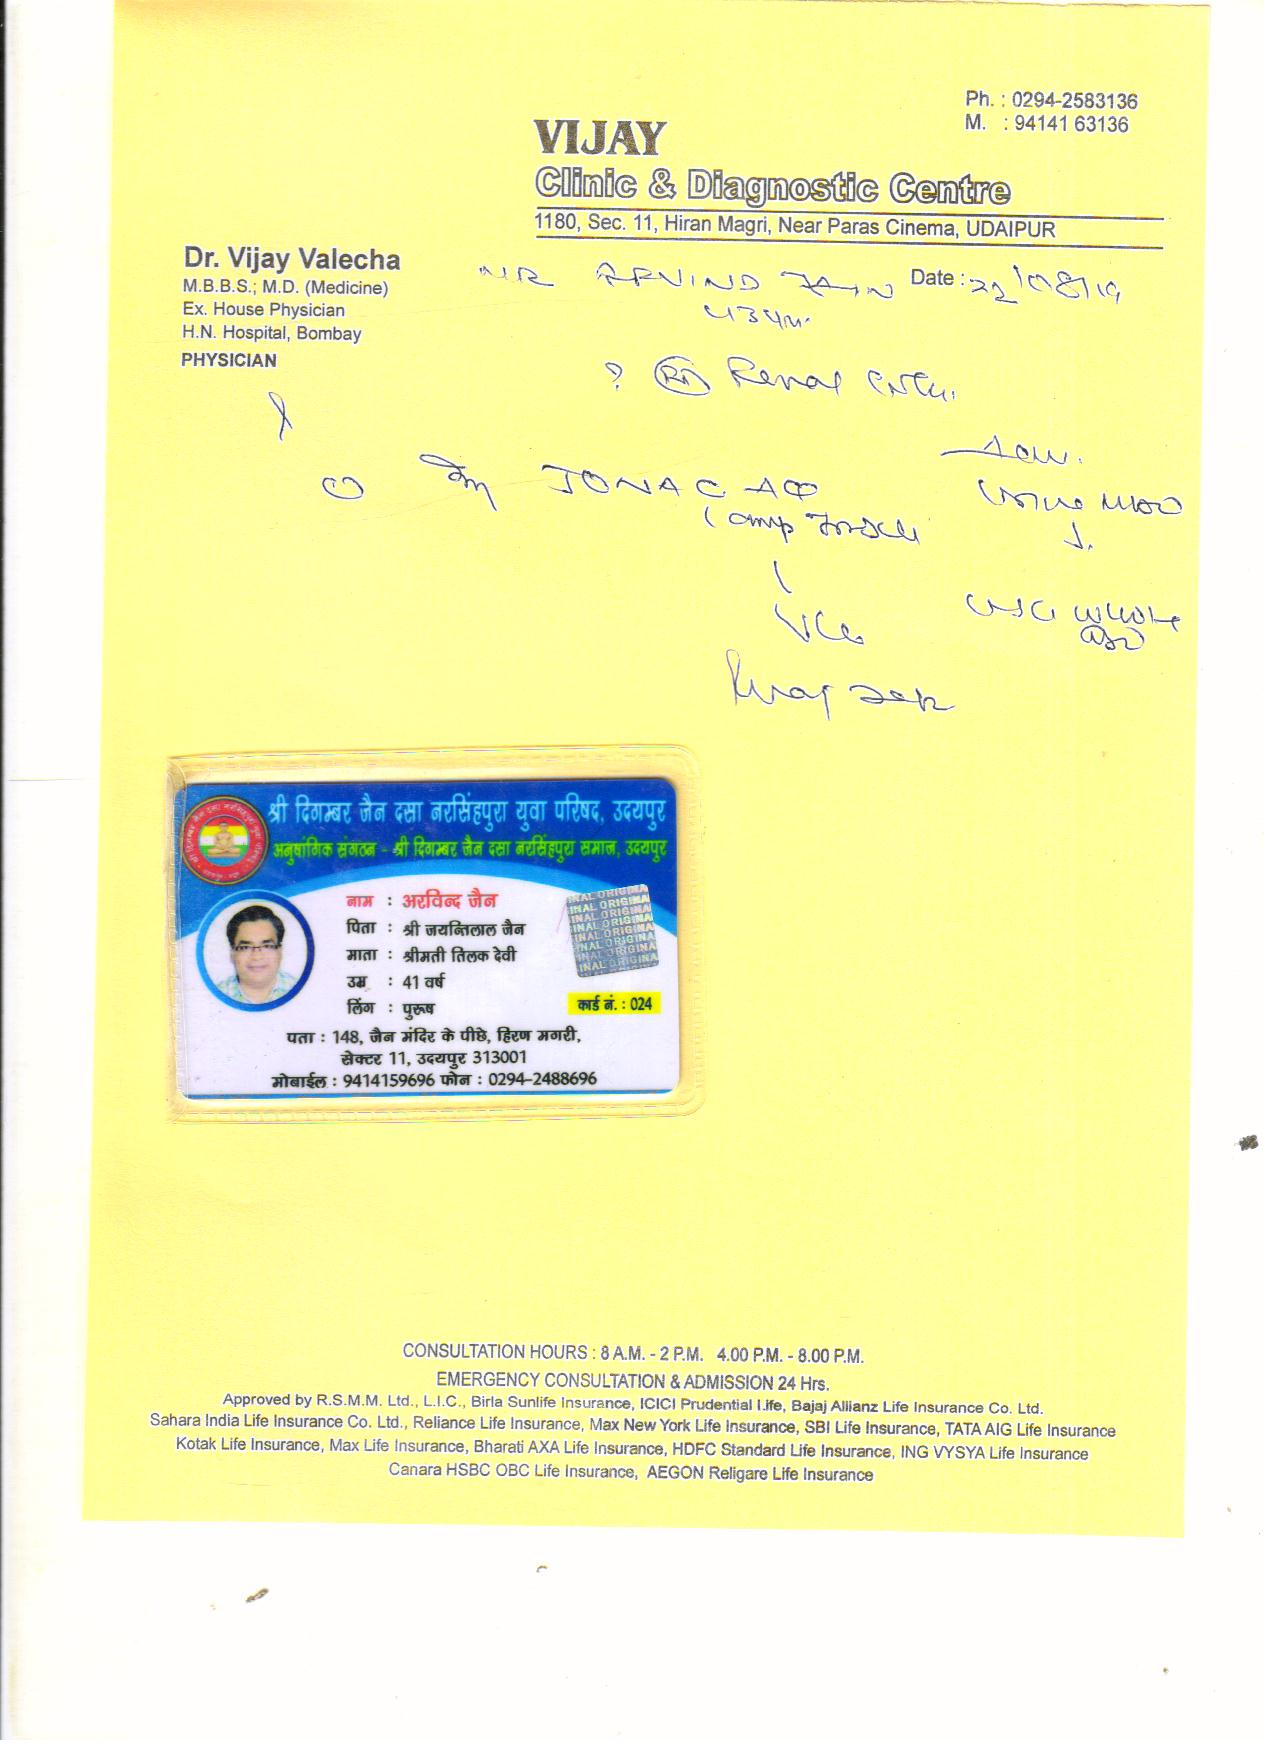 Ph. : 0294-2583136
M. : 94141 63136
VIJAY
Clinic & Diagnostic Centre
1180, Sec. 11, Hiran Magri, Near Paras Cinema, UDAIPUR
Dr. Vijay Valecha
M.B.B.S.; M.D. (Medicine)
Ex. House Physician
H.N. Hospital, Bombay
PHYSICIAN
MR ARVIND JAIN Date : 22/08/19
? Rt Renal
Adv.
JONAC AQ
USG WHOLE
श्री दिगम्बर जैन दसा नरसिंहपुरा युवा परिषद, उदयपुर
अनुषांगिक संगठन - श्री दिगम्बर जैन दसा नरसिंहपुरा समाज, उदयपुर
नाम : अरविन्द जैन
पिता : श्री जयन्तिलाल जैन
माता : श्रीमती तिलक देवी
उम्र : 41 वर्ष
लिंग : पुरूष
कार्ड नं. : 024
पता : 148, जैन मंदिर के पीछे, हिरण मगरी,
सेक्टर 11, उदयपुर 313001
मोबाईल : 9414159696 फोन : 0294-2488696
CONSULTATION HOURS : 8 A.M. - 2 P.M. 4.00 P.M. - 8.00 P.M.
EMERGENCY CONSULTATION & ADMISSION 24 Hrs.
Approved by R.S.M.M. Ltd., L.I.C., Birla Sunlife Insurance, ICICI Prudential Life, Bajaj Allianz Life Insurance Co. Ltd.
Sahara India Life Insurance Co. Ltd., Reliance Life Insurance, Max New York Life Insurance, SBI Life Insurance, TATA AIG Life Insurance
Kotak Life Insurance, Max Life Insurance, Bharati AXA Life Insurance, HDFC Standard Life Insurance, ING VYSYA Life Insurance
Canara HSBC OBC Life Insurance, AEGON Religare Life Insurance